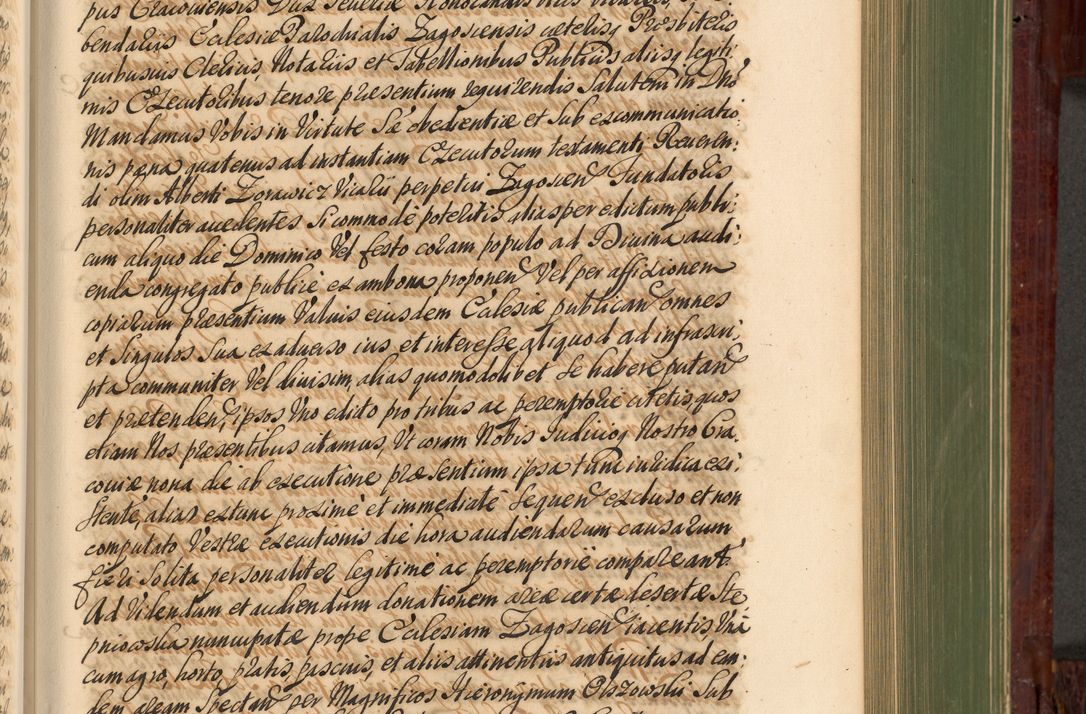 pus Cracoviensis Dux Severiæ
bendariis Ecclesiæ Parochialis Zagosciensis cæterisq Præsbiteris
quibusvis Clericis, Notariis et Tabellionibus Publicis aliisq legiti:
mis Executoribus tenore præsentium requirendis Salutem in Dno
Mandamus Vobis in Virtute Sæ obedientiæ et Sub excommunicatio:
nis pæna quatenus ad instantiam Executorum testamenti Reveren:
di olim Alberti Zorawicz Vicarii perpetui Zagoscien Fundatoris
personaliter accedentes Si commodè poteritis alias per edictum publi:
cum aliquo die Dominico Vel festo coram populo ad Divina audi:
enda congregato publicè ex ambona proponen Vel per affixionem
copiarum præsentium Valvis eiusdem Ecclesiæ publican omnes
et Singulos Sua ex adverso ius et interesse aliquod ad infrascri:
pta communiter Vel divisim, alias quomodolibet Se habere putan
et prætenden, ipsos Uno edicto pro tribus ac peremptorie citetis, quos
etiam Nos præsentibus citamus, Ut coram Nobis Iudicioq Nostro Cra:
coviæ nona die ab executione præsentium ipsa tunc iuridica exi:
stente, alias extunc proximè et immediatè Sequen excluso et non
computato Vestræ executionis die hora audiendarum causarum
fieri Solita personaliter legitimè ac peremptoriè compareant.
Ad Videndum et audiendum donationem areæ certæ desertæ Ste
pniowska nuncupatæ prope Ecclesiam Zagoscien iacentis, Unà
cum agro, horto, pratis, pascuis, et aliis attinentiis antiquitus ad ean:
dem aream Spectan per Magnificos Hieronymum Olszowski Sub